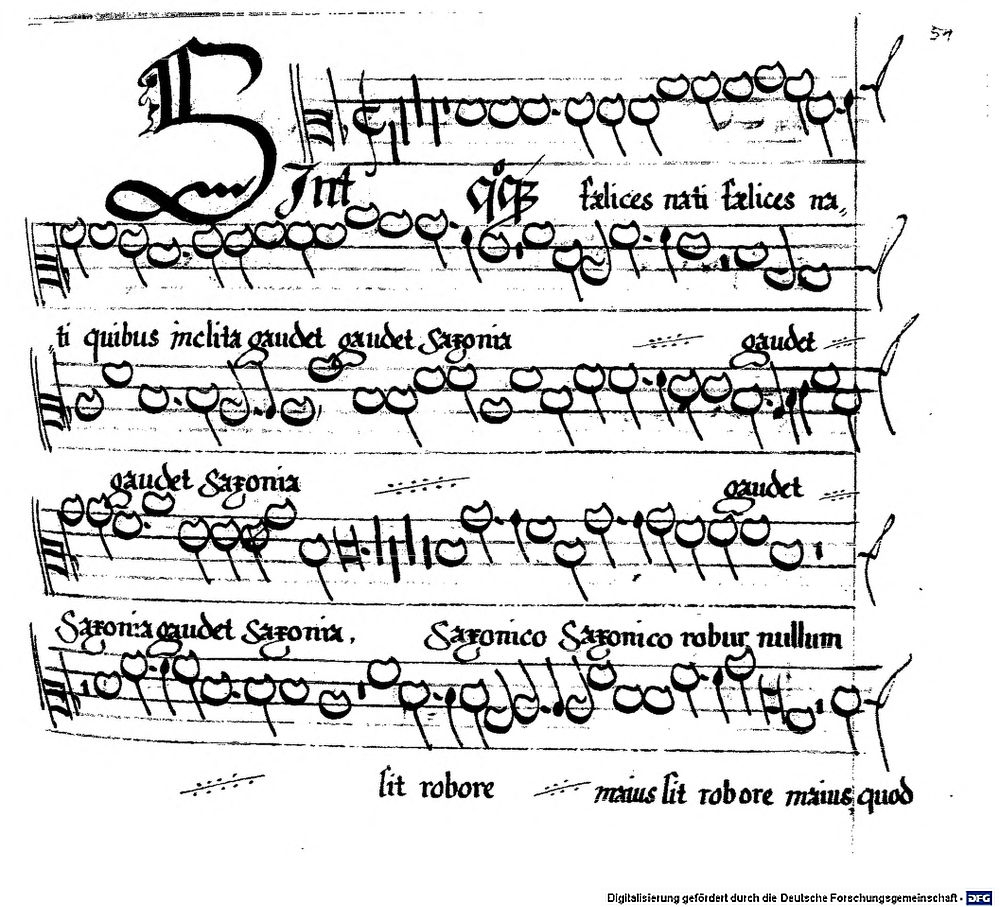 54
SInt felices nati felices na„
„ti quibus inclita gaudet gaudet Saxonia gaudet
gaudet Saxonia gaudet
Saxonia gaudet Saxonia. Saxonico Saxonico robur nullum
sit robore maius sit robore maius quod
Digitalisierung gefördert durch die Deutsche Forschungsgemeinschaft - DFG